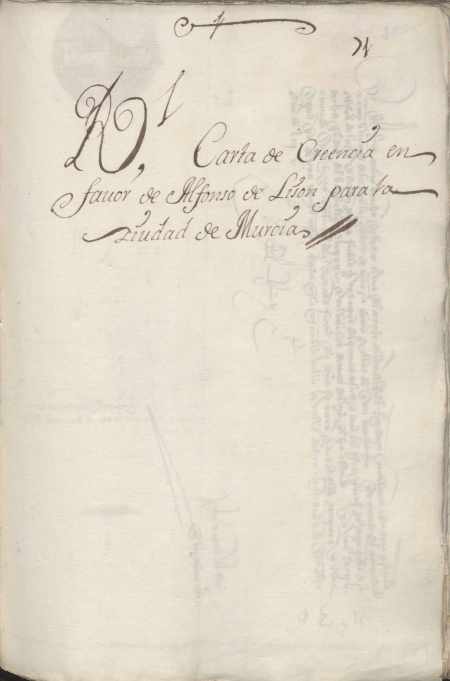 R.l Carta de Creencia en
favor de Alfonso de Lison para la
ziudad de Murcia